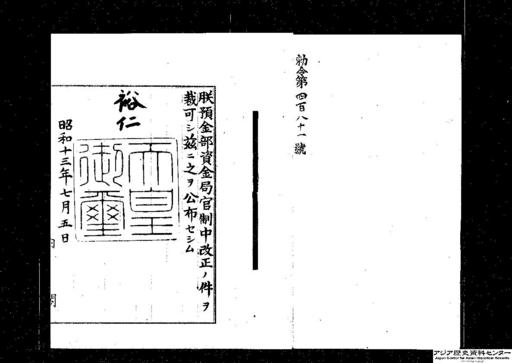 勅令第四百八十一號
朕預金部資金局官制中改正ノ件ヲ
裁可シ茲ニ之ヲ公布セシム
裕仁
天皇
御璽
昭和十三年七月五日
内閣
アジア歴史資料センター
Japan Center for Asian Historical Records